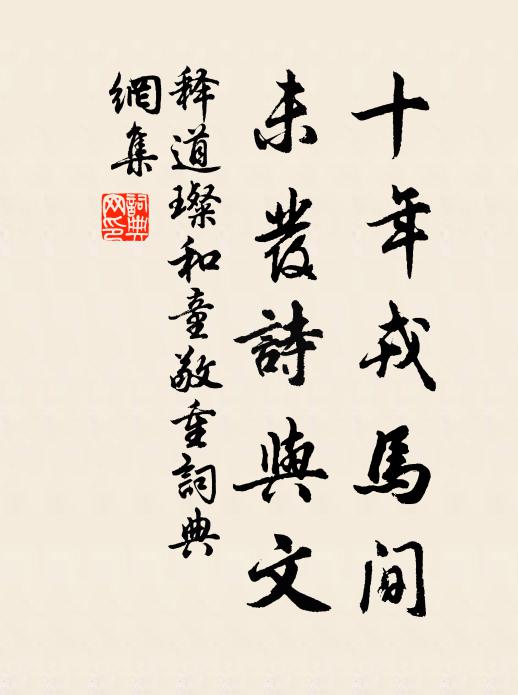 十年戎馬间
未發詩與文
释道璨和童敬重詞典
網集
詞典網印